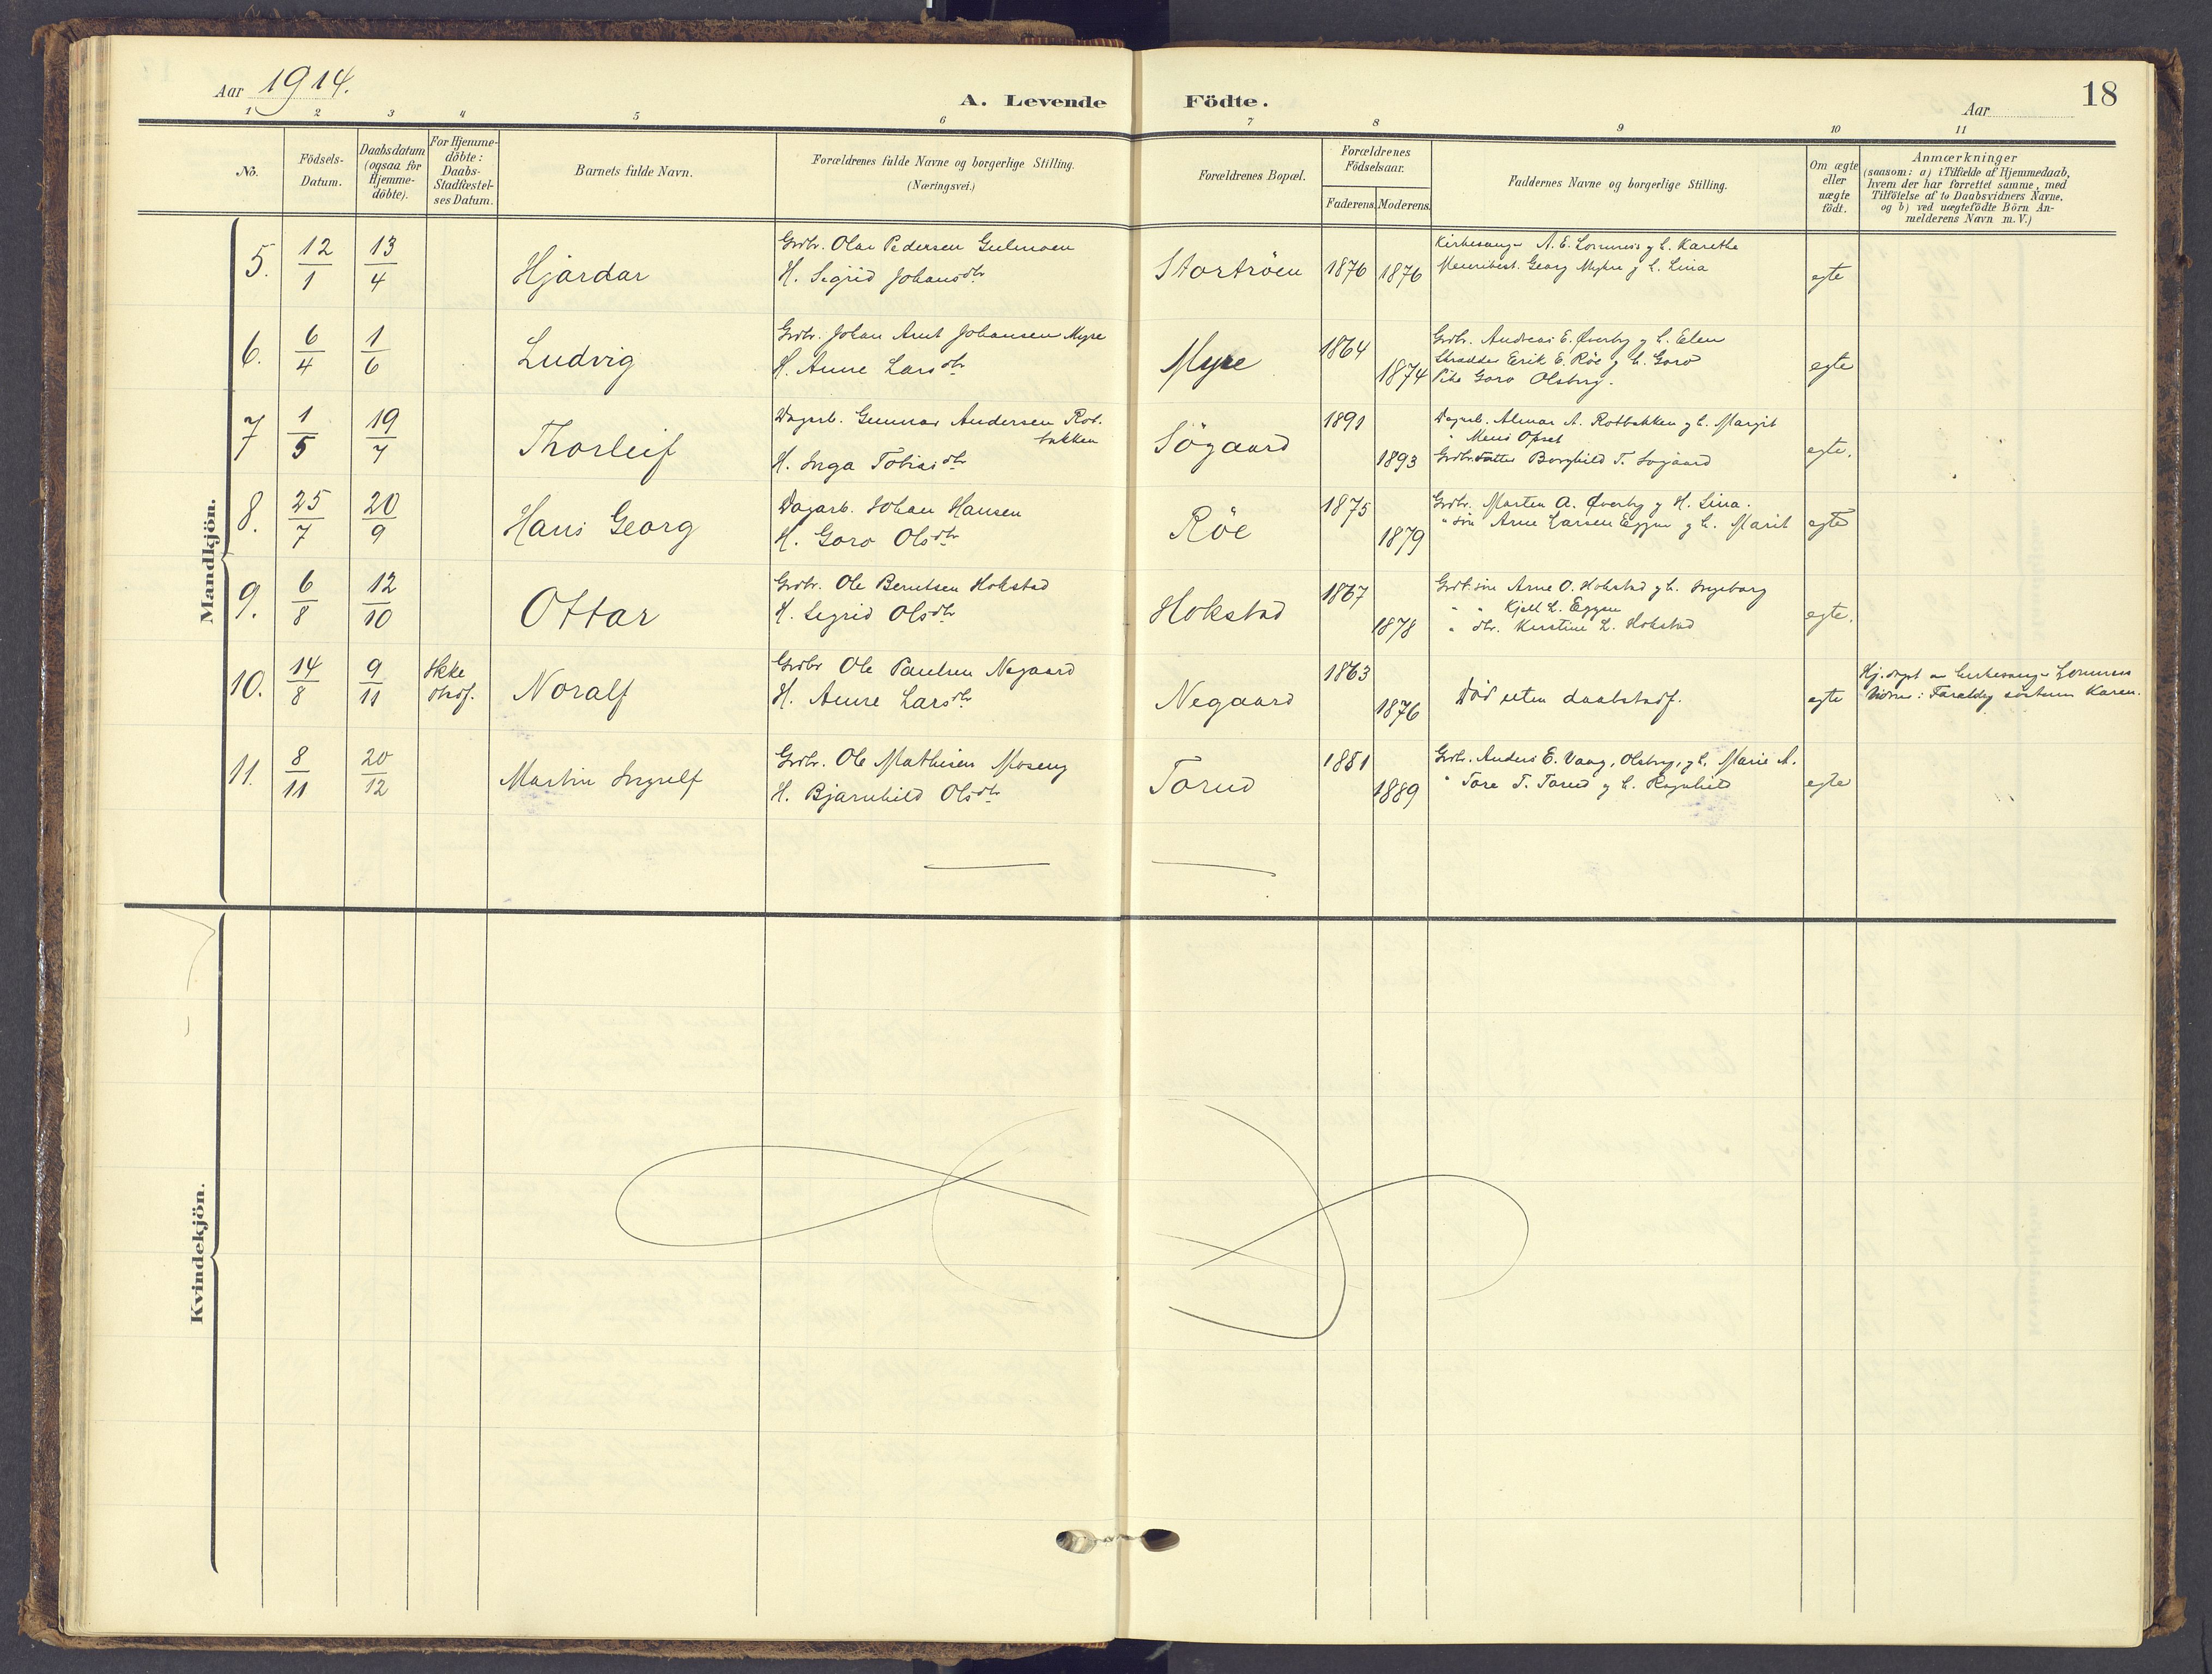 Aar 1914.
A. Levende Födte.
Aar
18
1 2 3 4 5 6 7 8 9 10 11
No.
Födsels-Datum.
Daabsdatum (ogsaa for Hjemme-döbte).
For Hjemme-döbte: Daabs-Stadfæstel-ses Datum.
Barnets fulde Navn.
Forældrenes fulde Navne og borgerlige Stilling.
(Næringsvei.)
Forældrenes Bopæl.
Forældrenes Födselsaar.
Faderens. Moderens.
Faddernes Navne og borgerlige Stilling.
Om ægte eller uægte födt.
Anmærkninger
(saasom: a) i Tilfælde af Hjemmedaab,
hvem der har forrettet samme, med
Tilföielse af to Daabsvidners Navne,
og b) ved uægtefödte Börn An-
melderens Navn m. V.)
Mandkjön.
5. 12/1 13/4 Hjardar
Grdbr. Olai Pedersen
H. Sigrid Johansdtr.
Stortröen 1876 1876
Kirkesanger A. E. Lommens g h. Karethe
Meieribest. Georg Myhre g h. Lina
egte
6. 6/4 1/6 Ludvig
Grdbr. Johan Arnt Johansen Myre
H. Anne Larsdtr.
Myre 1864 1874
Grdbr. Andreas E. Øverby g h. Elen
Skrædder Erik E. Røe g h. Goro
Pike Goro Olsbryg.
egte
7 1/5 19/7 Thorleif
Dagarb. Gunnar Andersen Rot-
bakken
H. Inga Tobiasdtr
Sögaard 1891 1893
Dagarb. Almar A. Rotbakken g h. Margit
" Meus Opset
Grdbr.datter Borghild T. Sogaard
egte.
8. 25/7 20/9 Hans Georg
Dagarb. Johan Hansen
H. Goro Olsdtr
Röe 1875 1879
Grdbr. Morten A. Øverby g H. Lina.
" sön Arne Larsen Eggen g h. Marit
egte
9. 6/8 12/10 Ottar
Grdbr. Ole Berntsen Hokstad
H. Sigrid Olsdtr
Hokstad 1867 1878
Grdbr.sön Arne O. Hokstad g h. Ingeborg
" " Kjell L. Eggen
" dtr. Kirstine L. Hokstad
egte.
10. 14/8 9/11 Ikke stadf. Noralf
Grdbr Ole Paulsen Negaard
H. Anne Larsdtr
Negaard 1863 1876
Död uten daabstadf.
egte
Hj.döpt av kirkesanger Lommens
Vidne: Foreldr. g söstren Karen.
11. 8/11 20/12 Martin Ingulf
Grdbr. Ole Mathisen Moseng
H. Bjarnhild Olsdtr
Torud 1881 1889
Grdbr. Anders E. Vang, Olsbryg, g h. Marie A.
" Tore T. Torud g h. Ragnhild
egte
Kvindekjön.